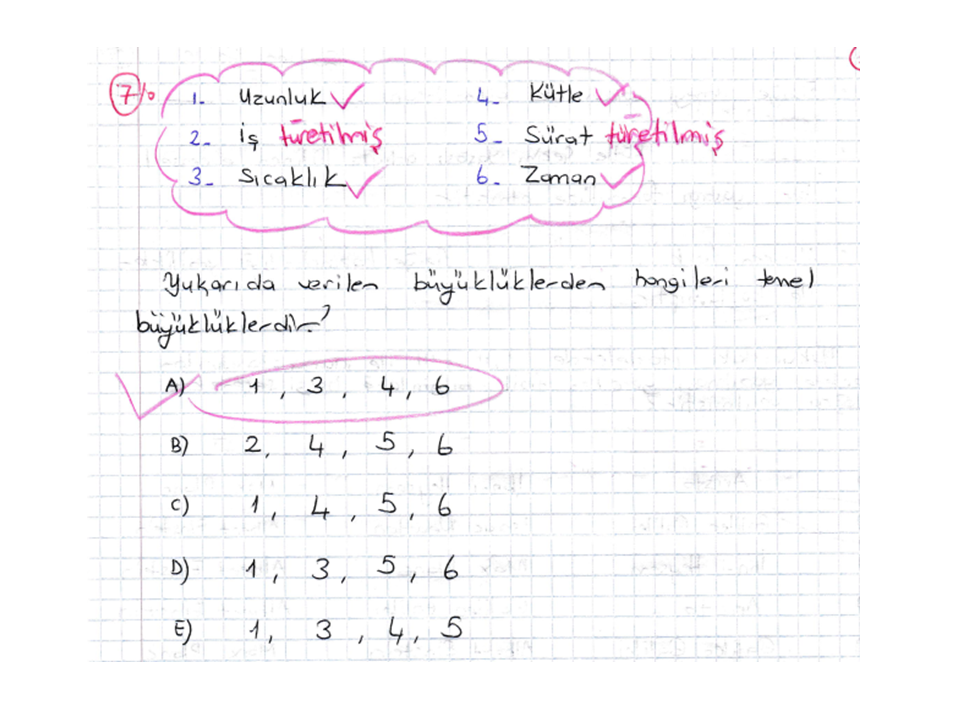 7/.
1- Uzunluk ✓ 4- Kütle ✓
2- iş türetilmiş 5- Sürat türetilmiş
3- Sıcaklık ✓ 6- Zaman ✓
Yukarıda verilen büyüklüklerden hangileri temel
büyüklüklerdir?
A) 1, 3, 4, 6
B) 2, 4, 5, 6
C) 1, 4, 5, 6
D) 1, 3, 5, 6
E) 1, 3, 4, 5